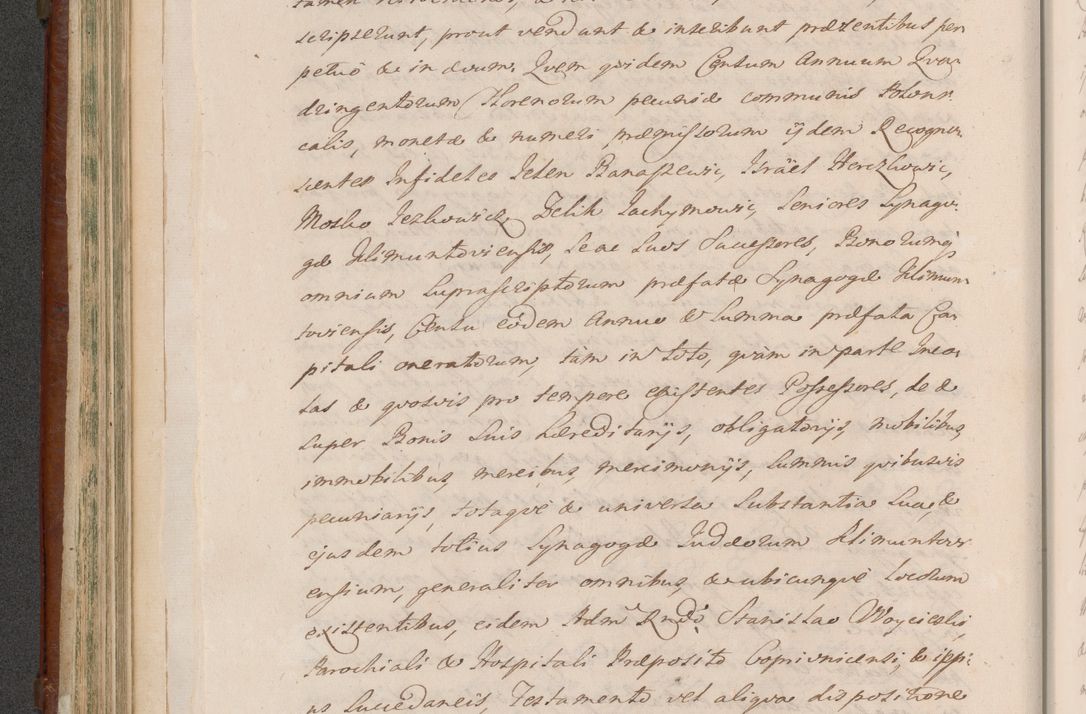 scripserunt, prout vendunt & inscribunt præsentibus per
petuò & in ævum. Qvem qvidem Censum Annuum Qva-
dringentorum Florenorum pecuniæ communis Poloni-
calis, monetæ & numeri præmissorum ijdem Recogno-
scentes Infideles Jelen Banaszewic, Jsräel Herczkowic,
Mosko Jezkowicz, Zelik Jachymowic, Seniores Synago-
gæ Klimuntoviensis, se ac Suos Successores, Bonorumq
omnium Suprascriptorum præfatæ Synagogæ Klimun
toviensis, Censu eodem Annuo & Summa præfata Ca-
pitali oneratorum, tàm in toto, qvàm in parte Inco-
las & qvosvis pro tempore existentes Possessores, de &
super Bonis Suis hæreditarijs, obligatorijs, mobilibus,
immobilibus, mercibus, mercimonijs, Summis qvibusvis
pecuniarijs, totaqve & universa Substantia Sua, &
ejusdem totius Synagogæ Judæorum Klimuntovi
ensium, generaliter omnibus, & ubicunqve locorum
existentibus, eidem Adm Rndo Stanislao Woycieski,
Parochiali & Hospitali Præposito Coprivnicensi, & ippi-
us Succedaneis, Testamento vel aliqva dispositione